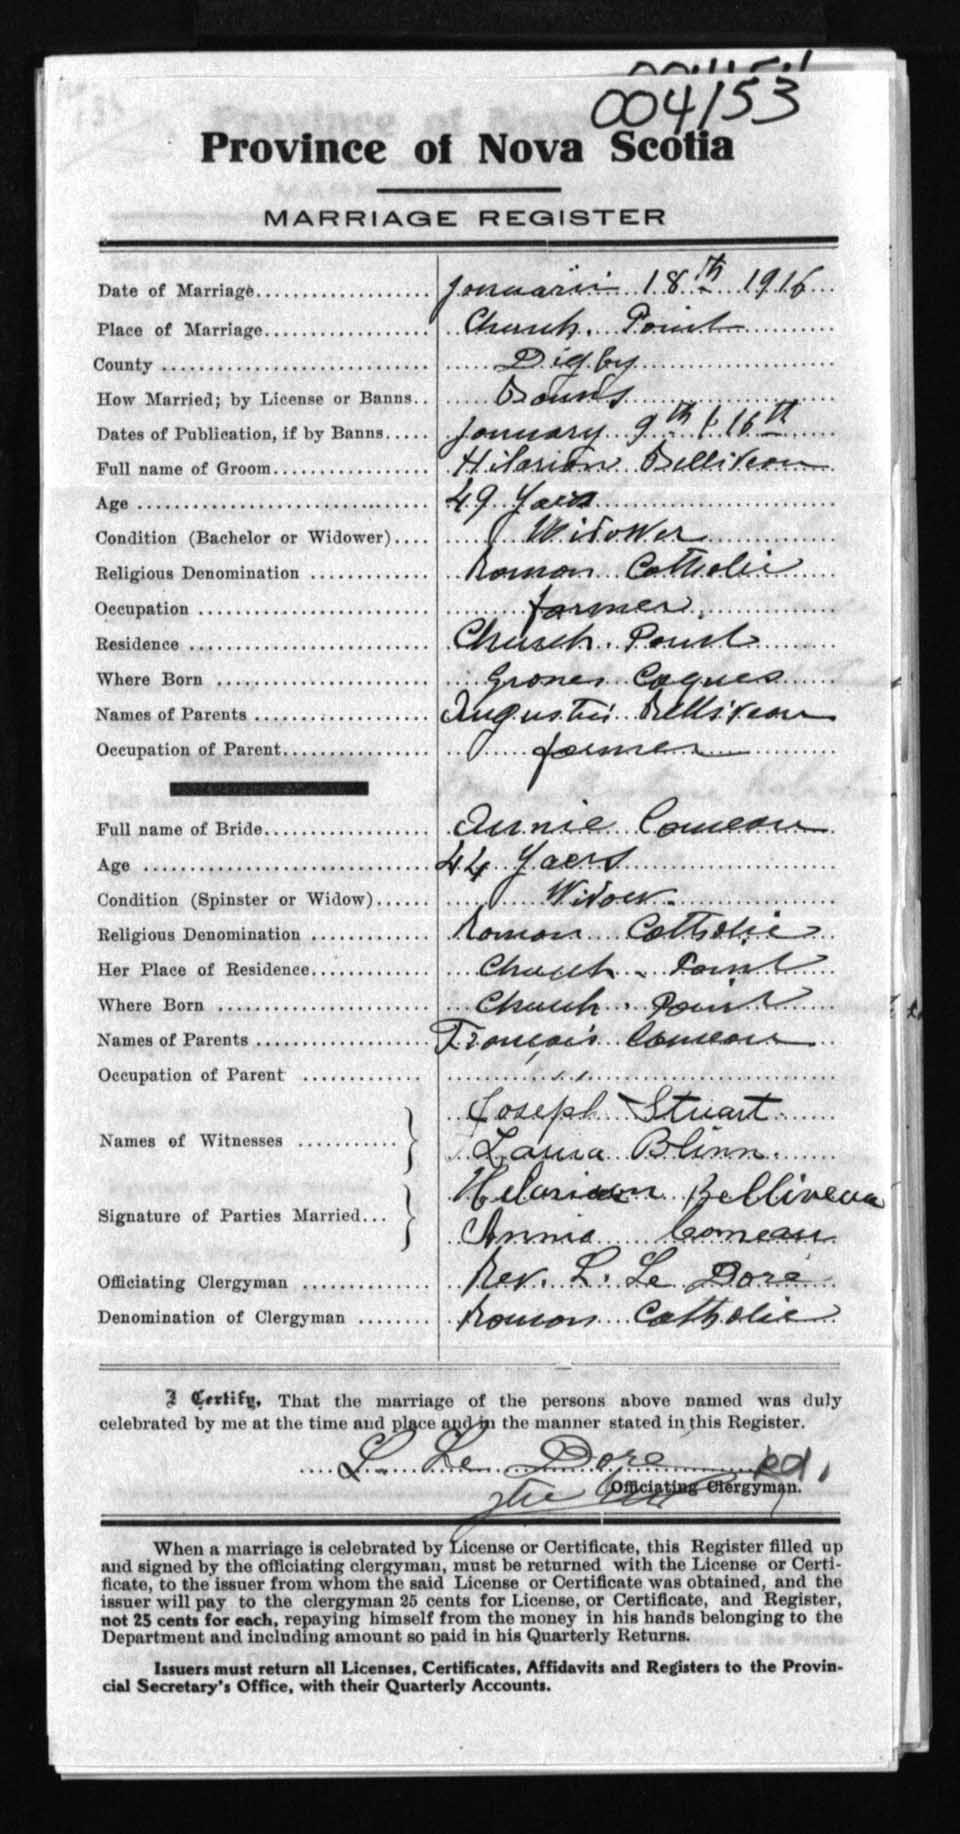 004153
Province of Nova Scotia
MARRIAGE REGISTER
Date of Marriage Januarii 18th 1916
Place of Marriage Church Point
County Digby
How Married; by License or Banns Banns
Dates of Publication, if by Banns January 9th & 16th
Full name of Groom Hilarion Belliveau
Age 49 Yaers
Condition (Bachelor or Widower) Widower
Religious Denomination Roman Catholic
Occupation farmer
Residence Church Point
Where Born Grones Coques
Names of Parents Augustin Belliveau
Occupation of Parent farmer
Full name of Bride Annie Comeau
Age 44 Yaers
Condition (Spinster or Widow) Widow
Religious Denomination Roman Catholic
Her Place of Residence Church Point
Where Born Church Point
Names of Parents François Comeau
Occupation of Parent
Names of Witnesses Joseph Stuart
Laura Blinn
Signature of Parties Married Belliveua
Annie Comeau
Officiating Clergyman Rev. L. Le Doré
Denomination of Clergyman Roman Catholic
I Certify, That the marriage of the persons above named was duly
celebrated by me at the time and place and in the manner stated in this Register.
L. Le Doré
Officiating Clergyman.
When a marriage is celebrated by License or Certificate, this Register filled up
and signed by the officiating clergyman, must be returned with the License or Certi-
ficate, to the issuer from whom the said License or Certificate was obtained, and the
issuer will pay to the clergyman 25 cents for License, or Certificate, and Register,
not 25 cents for each, repaying himself from the money in his hands belonging to the
Department and including amount so paid in his Quarterly Returns.
Issuers must return all Licenses, Certificates, Affidavits and Registers to the Provin-
cial Secretary's Office, with their Quarterly Accounts.